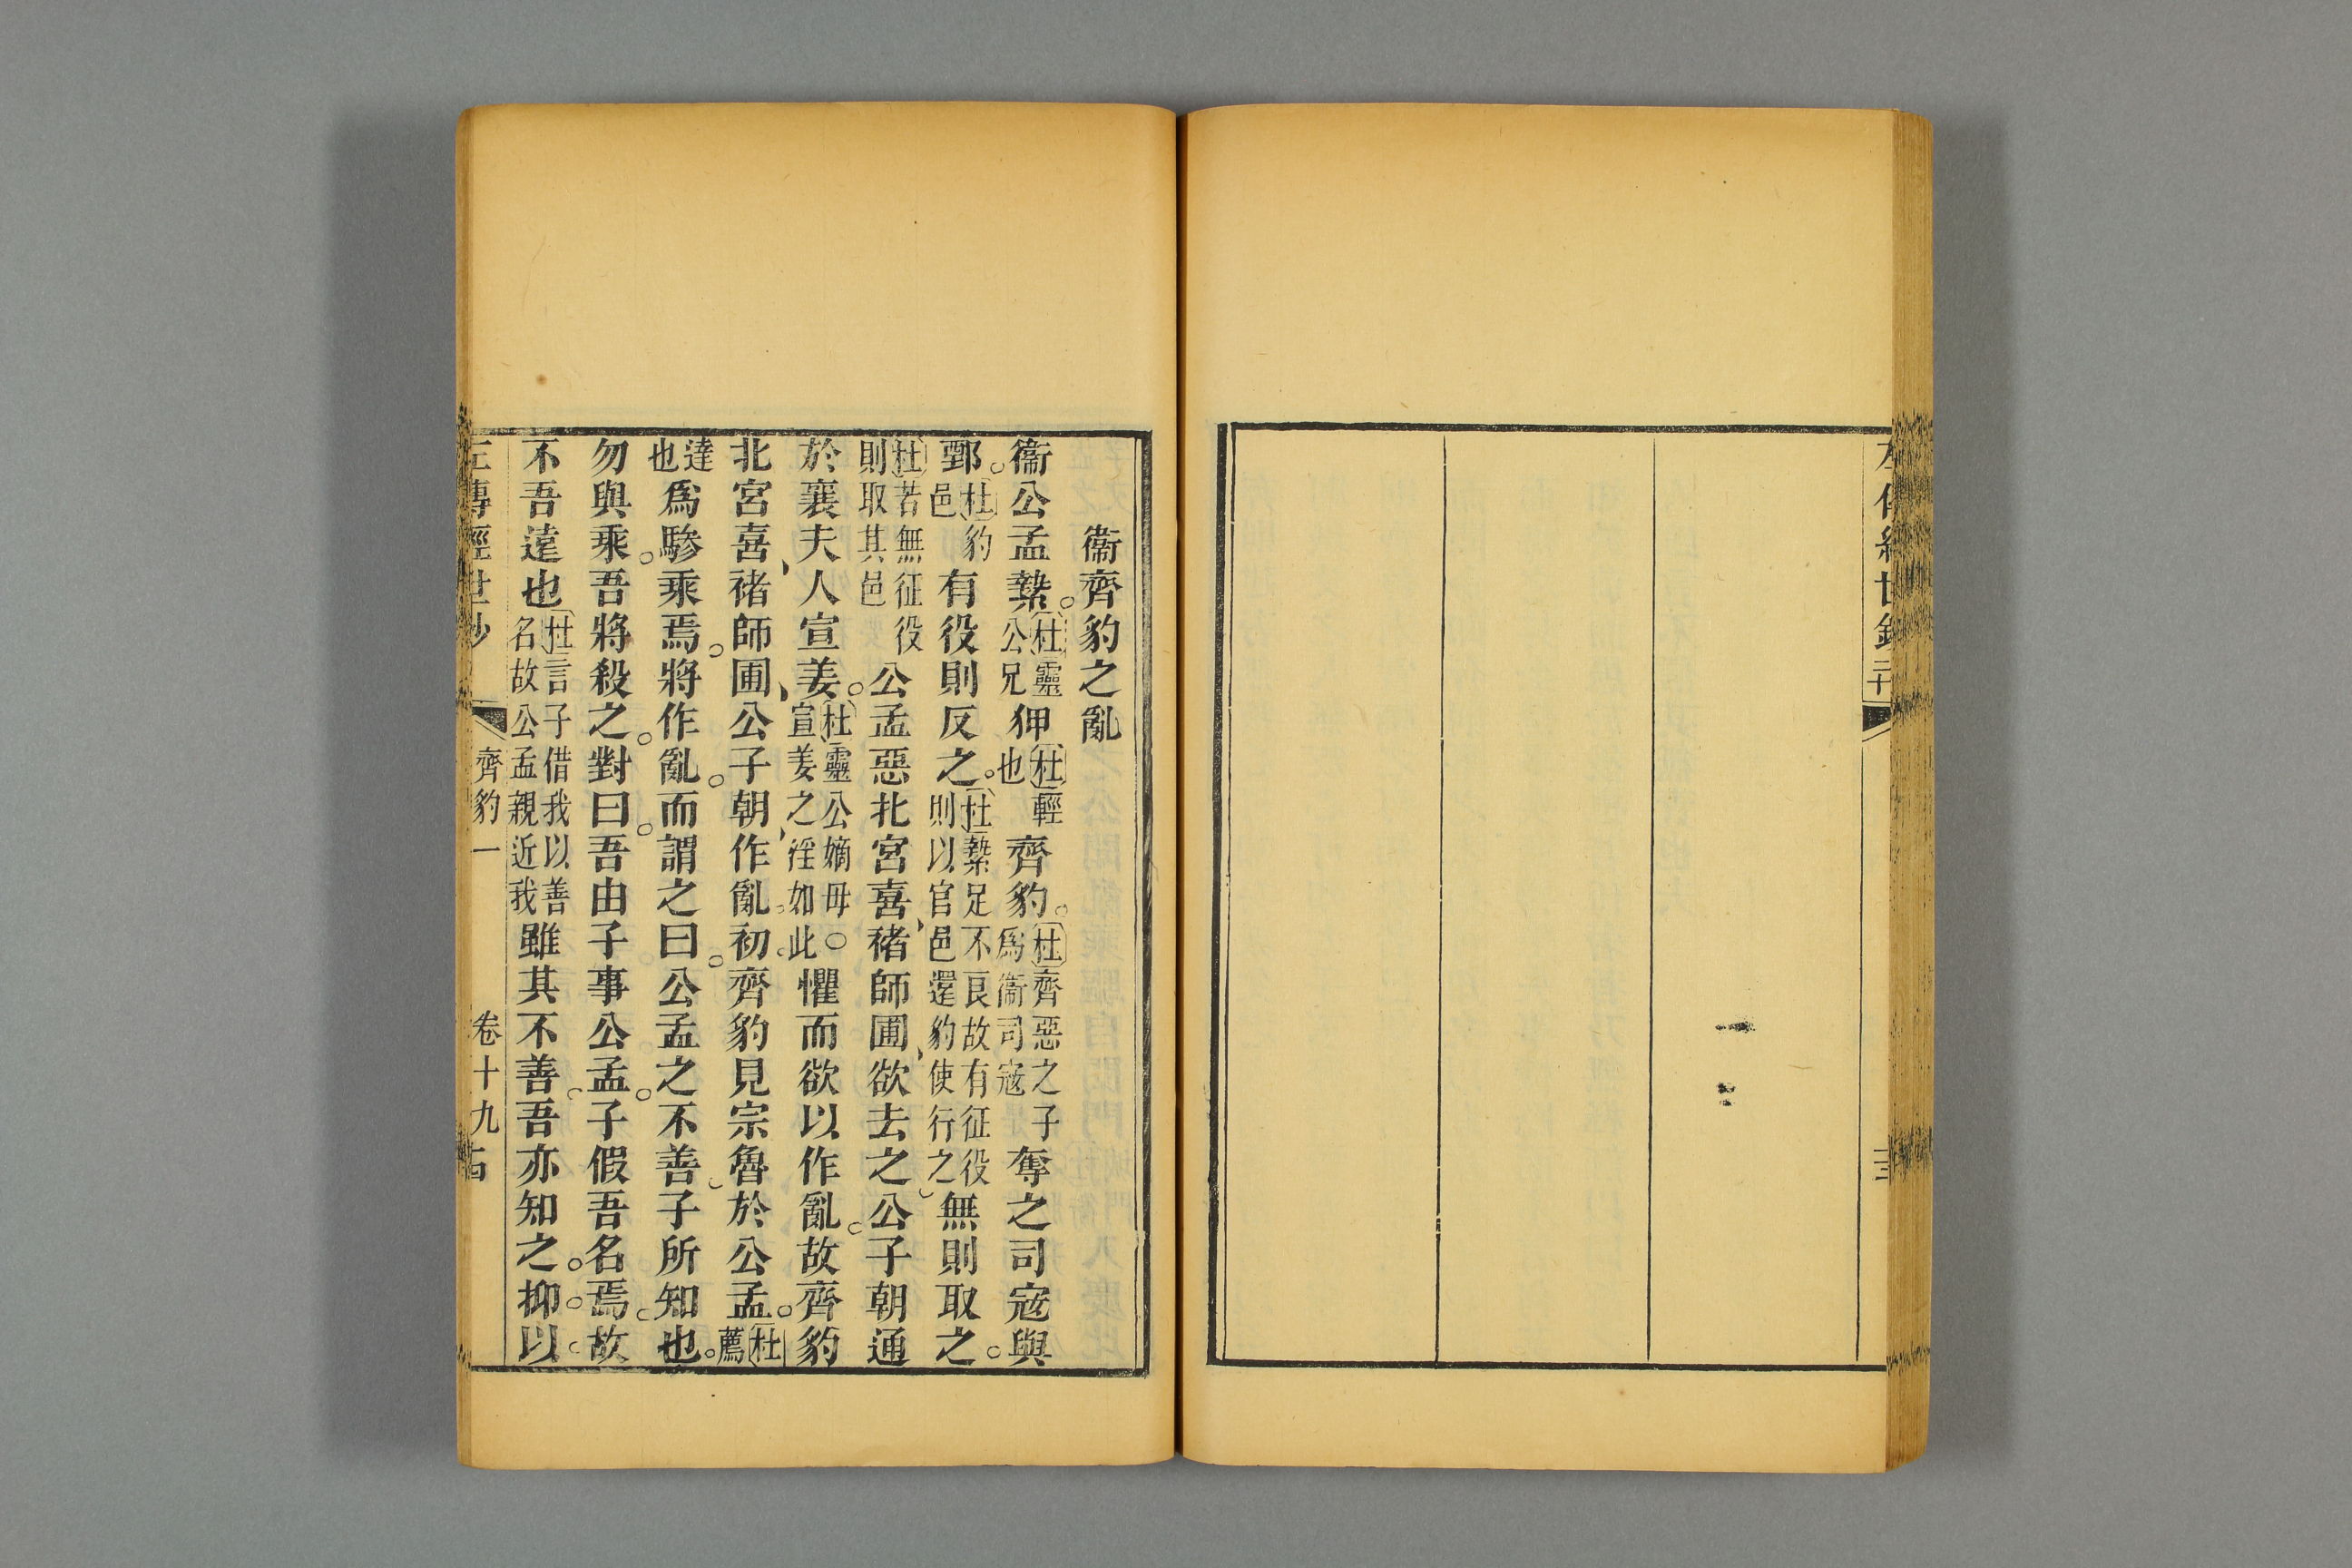 左傳經世鈔
衞齊豹之亂
衞公孟縶杜靈公兄狎杜輕也齊豹杜齊惡之子爲衞司寇奪之司寇與
鄄杜豹邑有役則反之杜縶足不良故有征役則以官邑還豹使行之無則取之
杜若無征役則取其邑公孟惡北宮喜褚師圃欲去之公子朝通
於襄夫人宣姜杜靈公嫡母○宣姜之淫如此懼而欲以作亂故齊豹
北宮喜褚師圃公子朝作亂初齊豹見宗魯於公孟杜薦
達也爲驂乘焉將作亂而謂之曰公孟之不善子所知也
勿與乘吾將殺之對曰吾由子事公孟子假吾名焉故
不吾遠也杜言子借我以善名故公孟親近我雖其不善吾亦知之抑以
左傳經世鈔 齊豹一 卷十九